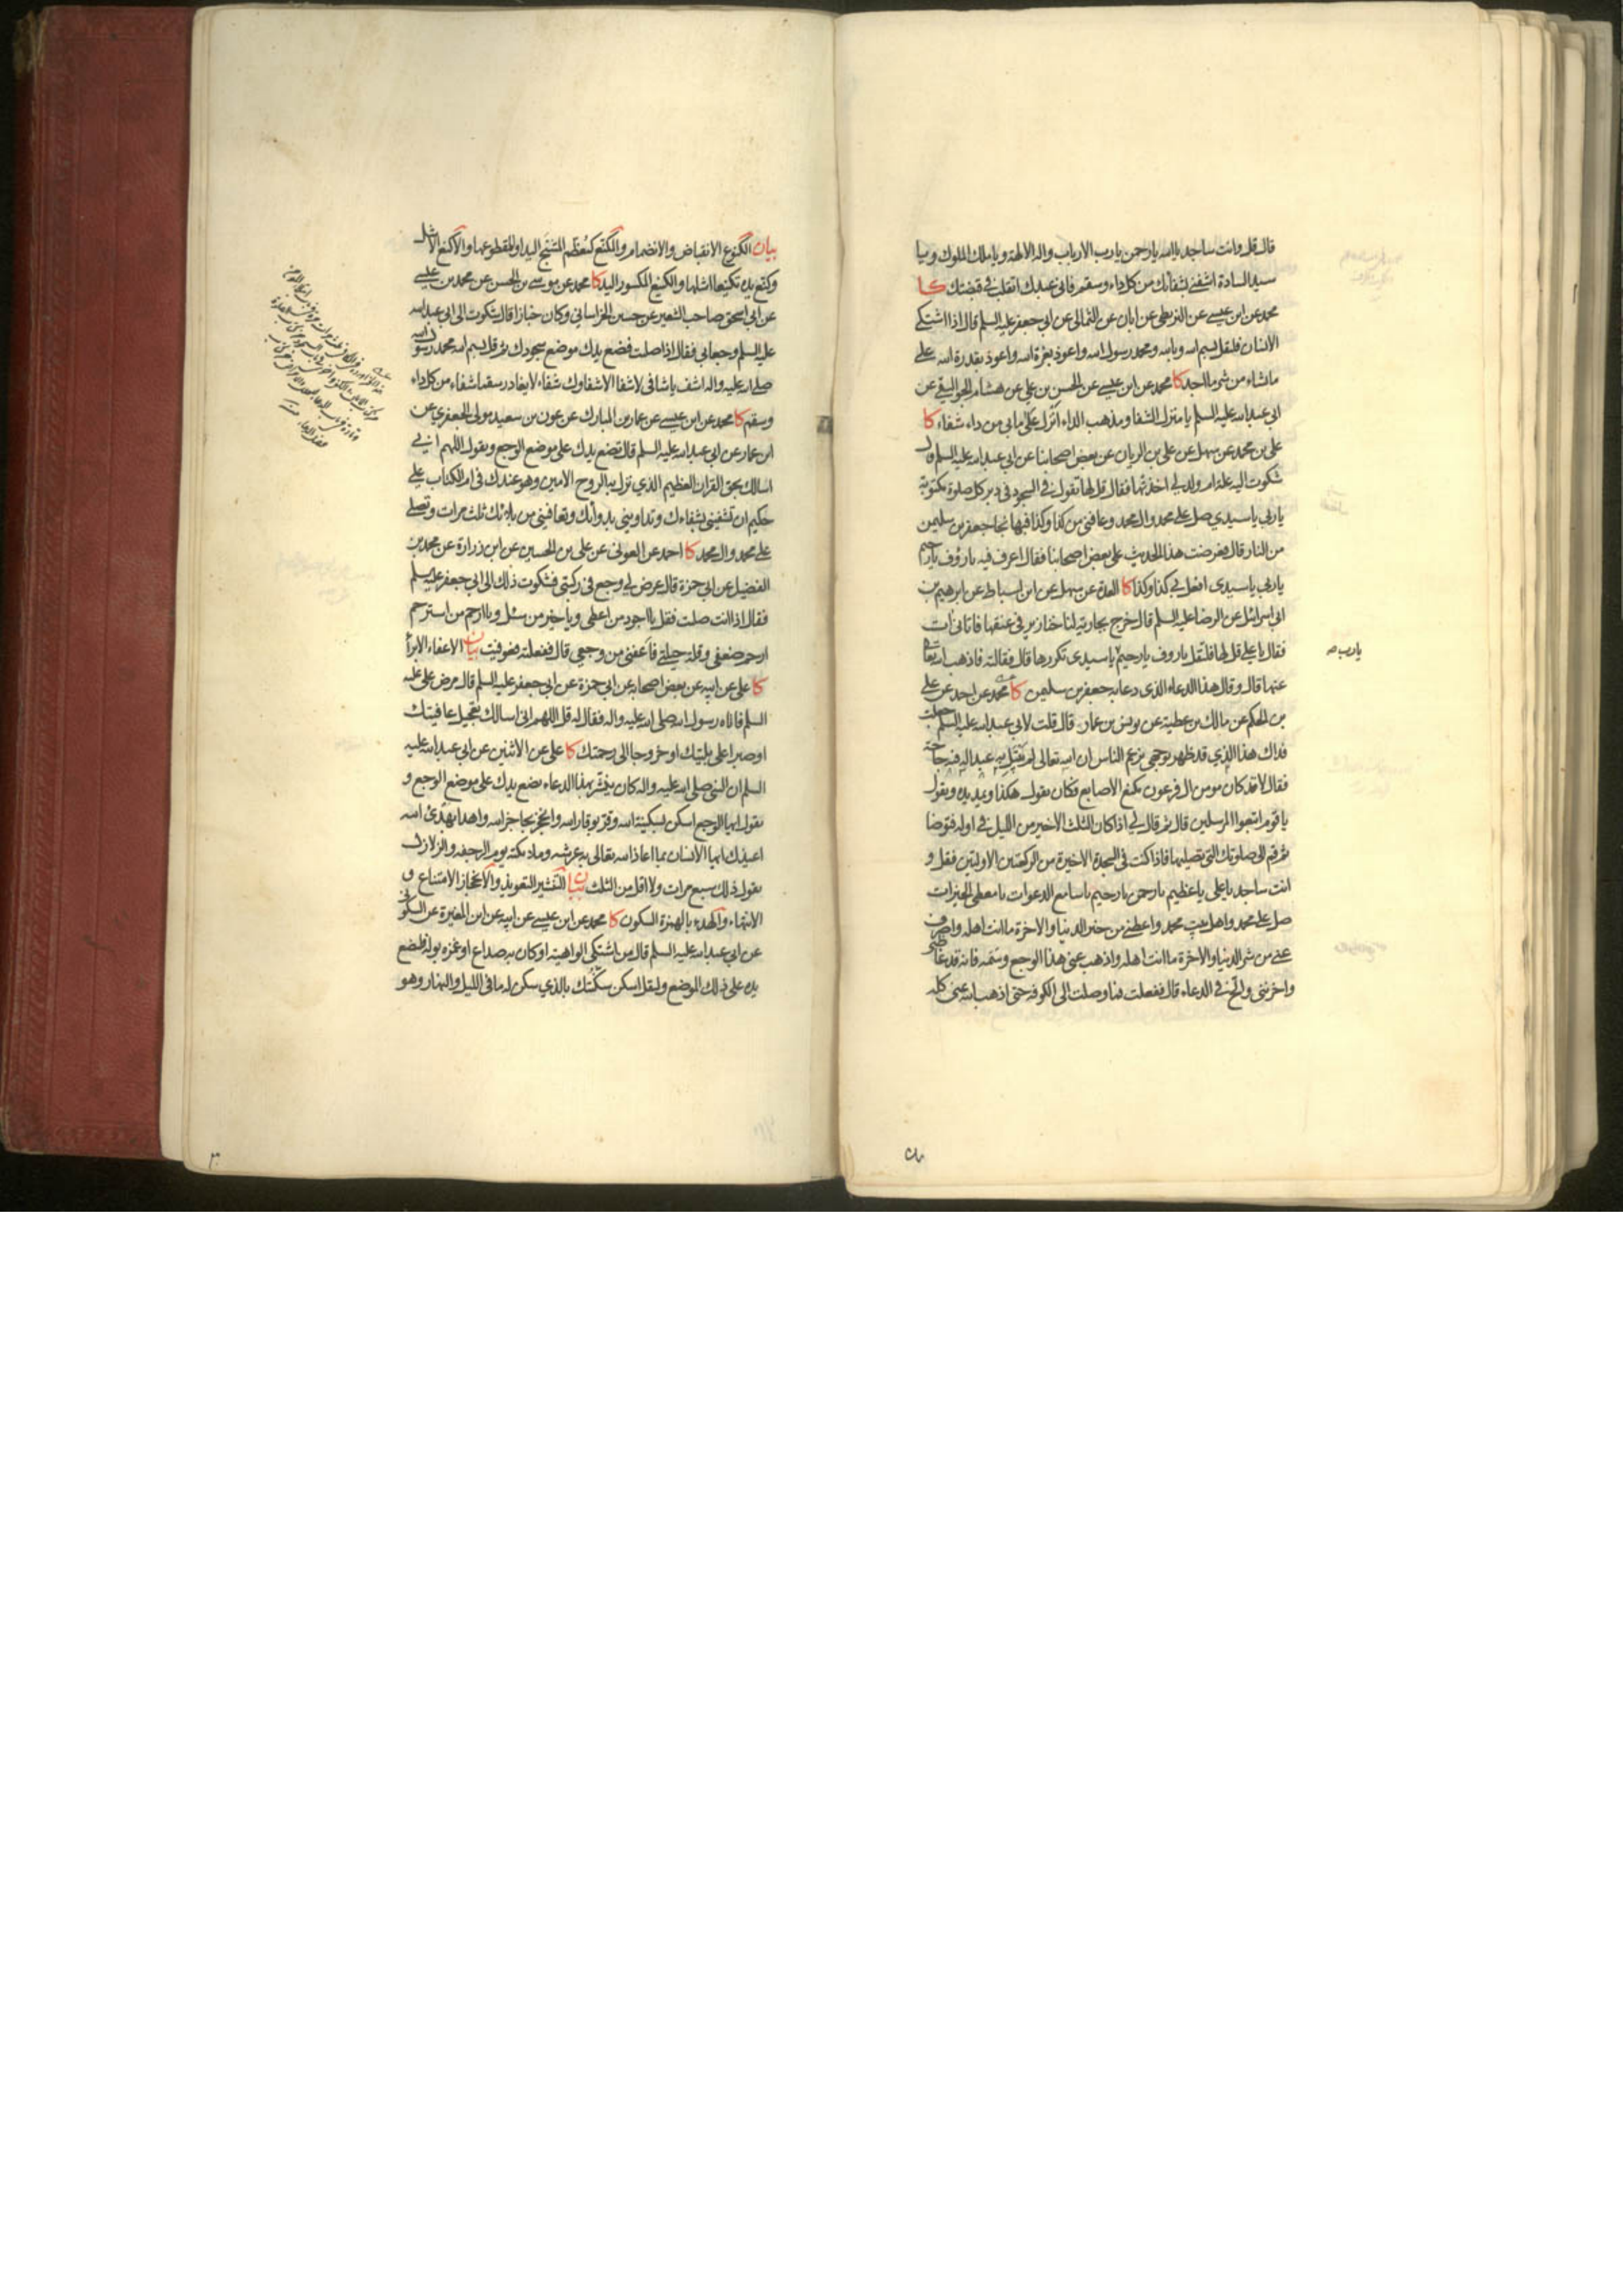 قال قل وانت ساجد يا الله يا رحمن يا رب الارباب واله الالهة ويا ملك الملوك ويا
سيد السادة اشفني بشفائك من كل داء وسقم فاني عبدك اتقلب في قبضتك كا
محمد عن ابن عيسى عن البزنطي عن ابان عن الثمالي عن ابي جعفر عليه السلم قال اذا اشتكى
الانسان فليقل بسم الله وبالله ومحمد رسول الله واعوذ بعزة الله واعوذ بقدرة الله على
ما شاء من شر ما اجد كا محمد عن ابن عيسى عن الحسن بن علي عن هشام الجواليقي عن
ابي عبد الله عليه السلم يا منزل الشفا ومذهب الداء انزل على ما بي من داء شفاء كا
علي بن محمد عن سهل عن علي بن الريان عن بعض اصحابنا عن ابي عبد الله عليه السلم قال
شكوت اليه علة ام ولد لي اخذتها فقال قل لها تقول في السجود في دبر كل صلوة مكتوبة
يا ربي يا سيدي صل على محمد وال محمد وعافني من كذا وكذا فبها نجا جعفر بن سليمن
من النار قال فعرضت هذا الحديث على بعض اصحابنا فقال اعرف فيه يا رؤف يا رحيم
يا ربي يا سيدي افعل بي كذا وكذا كا العدة عن سهل عن ابن اسباط عن ابرهيم بن
ابي اسرائيل عن الرضا عليه السلم قال خرج بجارية لنا خنازير في عنقها فاتاني ات
فقال يا علي قل لها فلتقل يا روف يا رحيم يا سيدي تكررها قال فقالته فاذهب الله تعالى
يا رب صح
عنها قال وقال هذا الدعاء الذي دعا به جعفر بن سليمن كا محمد عن احمد عن علي
بن الحكم عن مالك بن عطية عن يونس بن عمار قال قلت لابي عبد الله عليه السلم جعلت
فداك هذا الذي قد ظهر بوجهي يزعم الناس ان الله تعالى لم يبتل به عبدا له فيه حاجة
فقال لا قد كان مومن ال فرعون مكنع الاصابع فكان يقول هكذا ويمد يده ويقول
يا قوم اتبعوا المرسلين قال ثم قال لي اذا كان الثلث الاخير من الليل في اوله فتوضا
ثم قم الى صلوتك التي تصليها فاذا كنت في السجدة الاخيرة من الركعتين الاوليين فقل و
انت ساجد يا علي يا عظيم يا رحمن يا رحيم يا سامع الدعوات يا معطي الخيرات
صل على محمد واهل بيت محمد واعطني من خير الدنيا والاخرة ما انت اهله واصرف
عني من شر الدنيا والاخرة ما انت اهله واذهب عني هذا الوجع وسمه فانه قد غاظني
واحزنني والح في الدعاء قال ففعلت فما وصلت الى الكوفة حتى اذهب الله عني كله
بيان الكنوع الانقباض والانضمام والمكنع كمعظم المشنج اليد او المقطوعها والاكنع الاشل
وكنع يده تكنيعا اشلها والكنيع المكسور اليد كا محمد عن موسى بن الحسن عن محمد بن عيسى
عن ابي اسحق صاحب الشعير عن حسين الخراساني وكان خبازا قال شكوت الى ابي عبد الله
عليه السلم وجعا بي فقال اذا صليت فضع يدك موضع سجودك ثم قل بسم الله محمد رسول الله
صلى الله عليه واله اشف يا شافي لا شفا الا شفاوك شفاء لا يغادر سقما شفاء من كل داء
وسقم كا محمد عن ابن عيسى عن عمار بن المبارك عن عون بن سعيد مولى الجعفري عن
ابن عمار عن ابي عبد الله عليه السلم قال تضع يدك على موضع الوجع وتقول اللهم اني
اسالك بحق القران العظيم الذي نزل به الروح الامين وهو عندك في ام الكتاب علي
حكيم ان تشفيني بشفاءك وتداويني بدوائك وتعافيني من بلائك ثلث مرات وتصلي
على محمد وال محمد كا احمد عن العوفي عن علي بن الحسين عن ابن زرارة عن محمد بن
الفضيل عن ابي حمزة قال عرض لي وجع في ركبتي فشكوت ذلك الى ابي جعفر عليه السلم
فقال اذا انت صليت فقل يا اجود من اعطى ويا خير من سئل ويا ارحم من استرحم
ارحم ضعفي وقلة حيلتي فاعفني من وجعي قال ففعلته فعوفيت بيان الاعفاء الابراء
كا علي عن ابيه عن بعض اصحابه عن ابي حمزة عن ابي جعفر عليه السلم قال مرض علي عليه
السلم فاتاه رسول الله صلى الله عليه واله فقال له قل اللهم اني اسالك تعجيل عافيتك
او صبرا على بليتك او خروجا الى رحمتك كا علي عن الاثنين عن ابي عبد الله عليه
السلم ان النبي صلى الله عليه واله كان ينشر بهذا الدعاء يضع يدك على موضع الوجع و
يقول ايها الوجع اسكن بسكينة الله وقر بوقار الله وانحجز بحاجز الله واهدا بهدئ الله
اعيذك ايها الانسان بما اعاذ الله تعالى به عرشه وملائكته يوم الرجفه والزلازل
يقول ذلك سبع مرات ولا اقل من الثلث بيان التنشير التعويذ والانحجاز الامتناع و
الانتهاء والهدء بالهمزة السكون كا محمد عن ابن عيسى عن ابيه عن ابن المغيرة عن السكوني
عن ابي عبد الله عليه السلم قال من اشتكى الواهية او كان به صداع او غمزه بوله فليضع
يده على ذلك الموضع وليقل اسكن سكنتك بالذي سكن له ما في الليل والنهار وهو